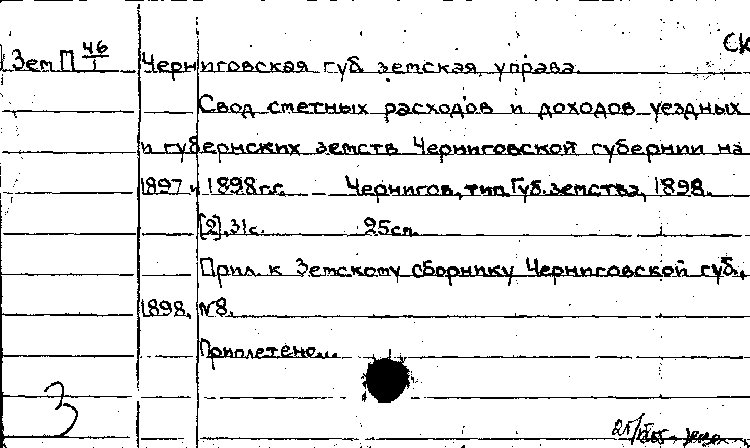 СК
Зем П 46/1 Черниговская губ. земская управа.
Свод сметных расходов и доходов уездных
и губернских земств Черниговской губернии на
1897 и 1898 г.г. Чернигов, тип. Губ. земства, 1898.
[2], 31с. 25см.
Прил. к Земскому сборнику Черниговской губ.,
1898, №8.
Приплетено...
3